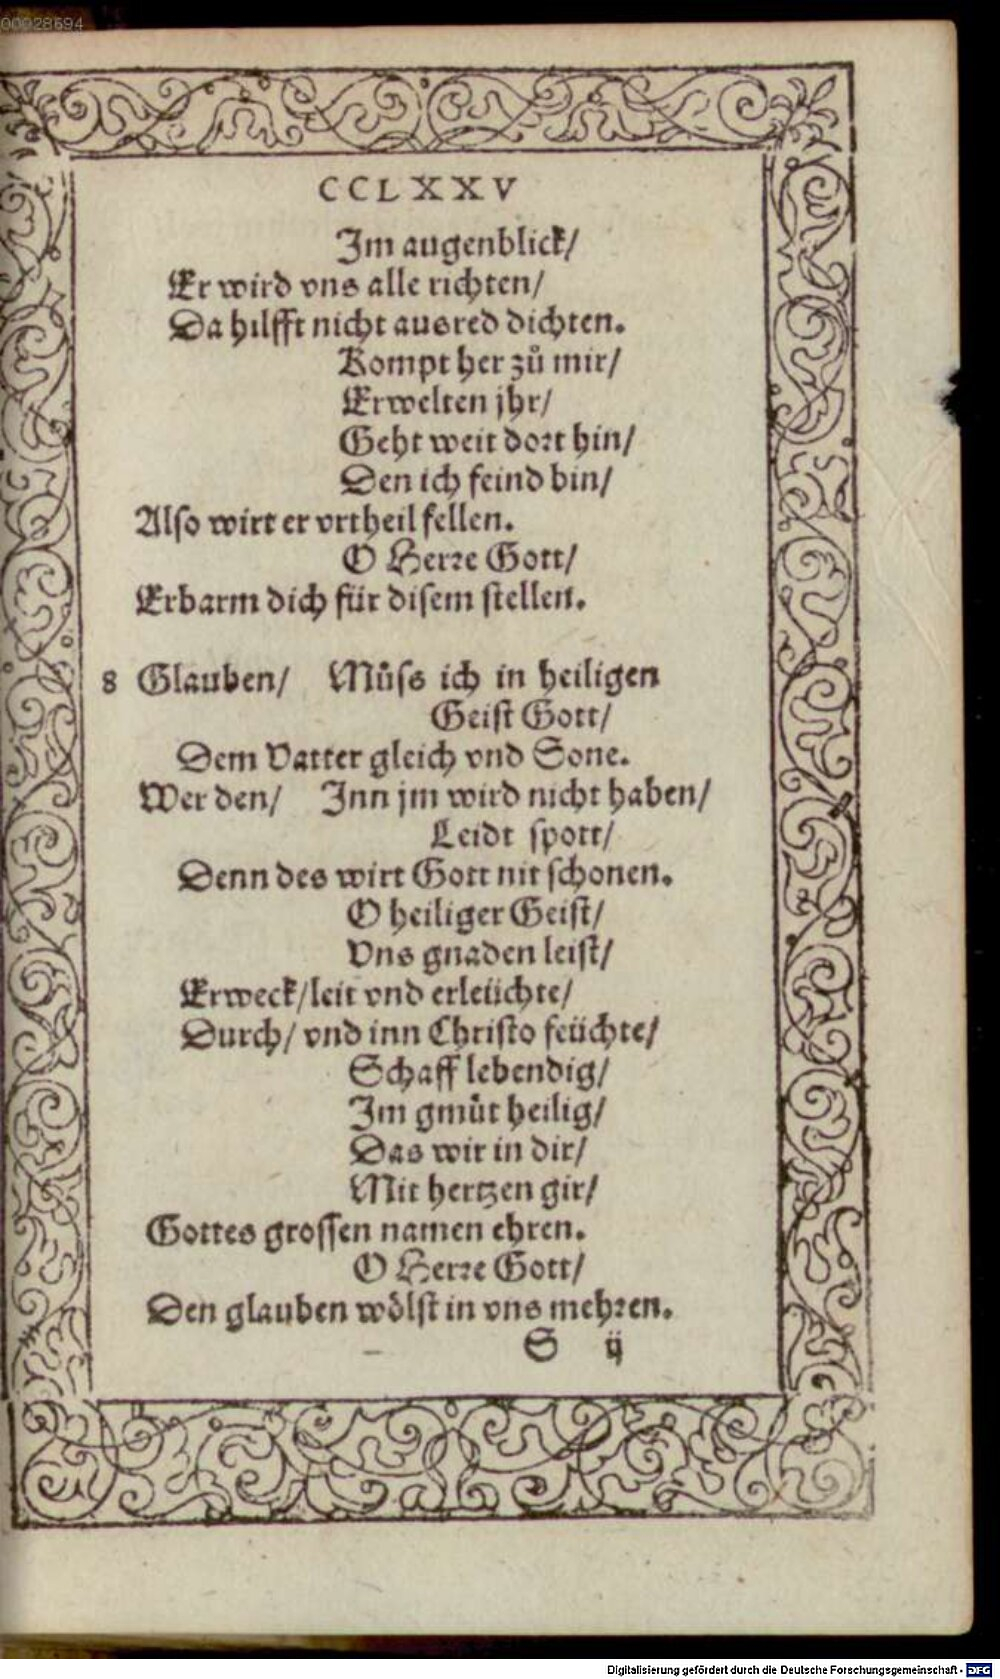 00028694
CCLXXV
Im augenblick/
Er wird vns alle richten/
Da hilfft nicht ausred dichten.
Kompt her zů mir/
Erwelten jhr/
Geht weit dort hin/
Den ich feind bin/
Also wirt er vrtheil fellen.
O Herre Gott/
Erbarm dich für disem stellen.
8 Glauben/ Můss ich in heiligen
Geist Gott/
Dem Vatter gleich vnd Sone.
Wer den/ Inn jm wird nicht haben/
Leidt spott/
Denn des wirt Gott nit schonen.
O heiliger Geist/
Vns gnaden leist/
Erweck/leit vnd erleüchte/
Durch/ vnd inn Christo feüchte/
Schaff lebendig/
Im gmůt heilig/
Das wir in dir/
Mit hertzen gir/
Gottes grossen namen ehren.
O Herre Gott/
Den glauben wölst in vns mehren.
S ij
Digitalisierung gefördert durch die Deutsche Forschungsgemeinschaft - DFG